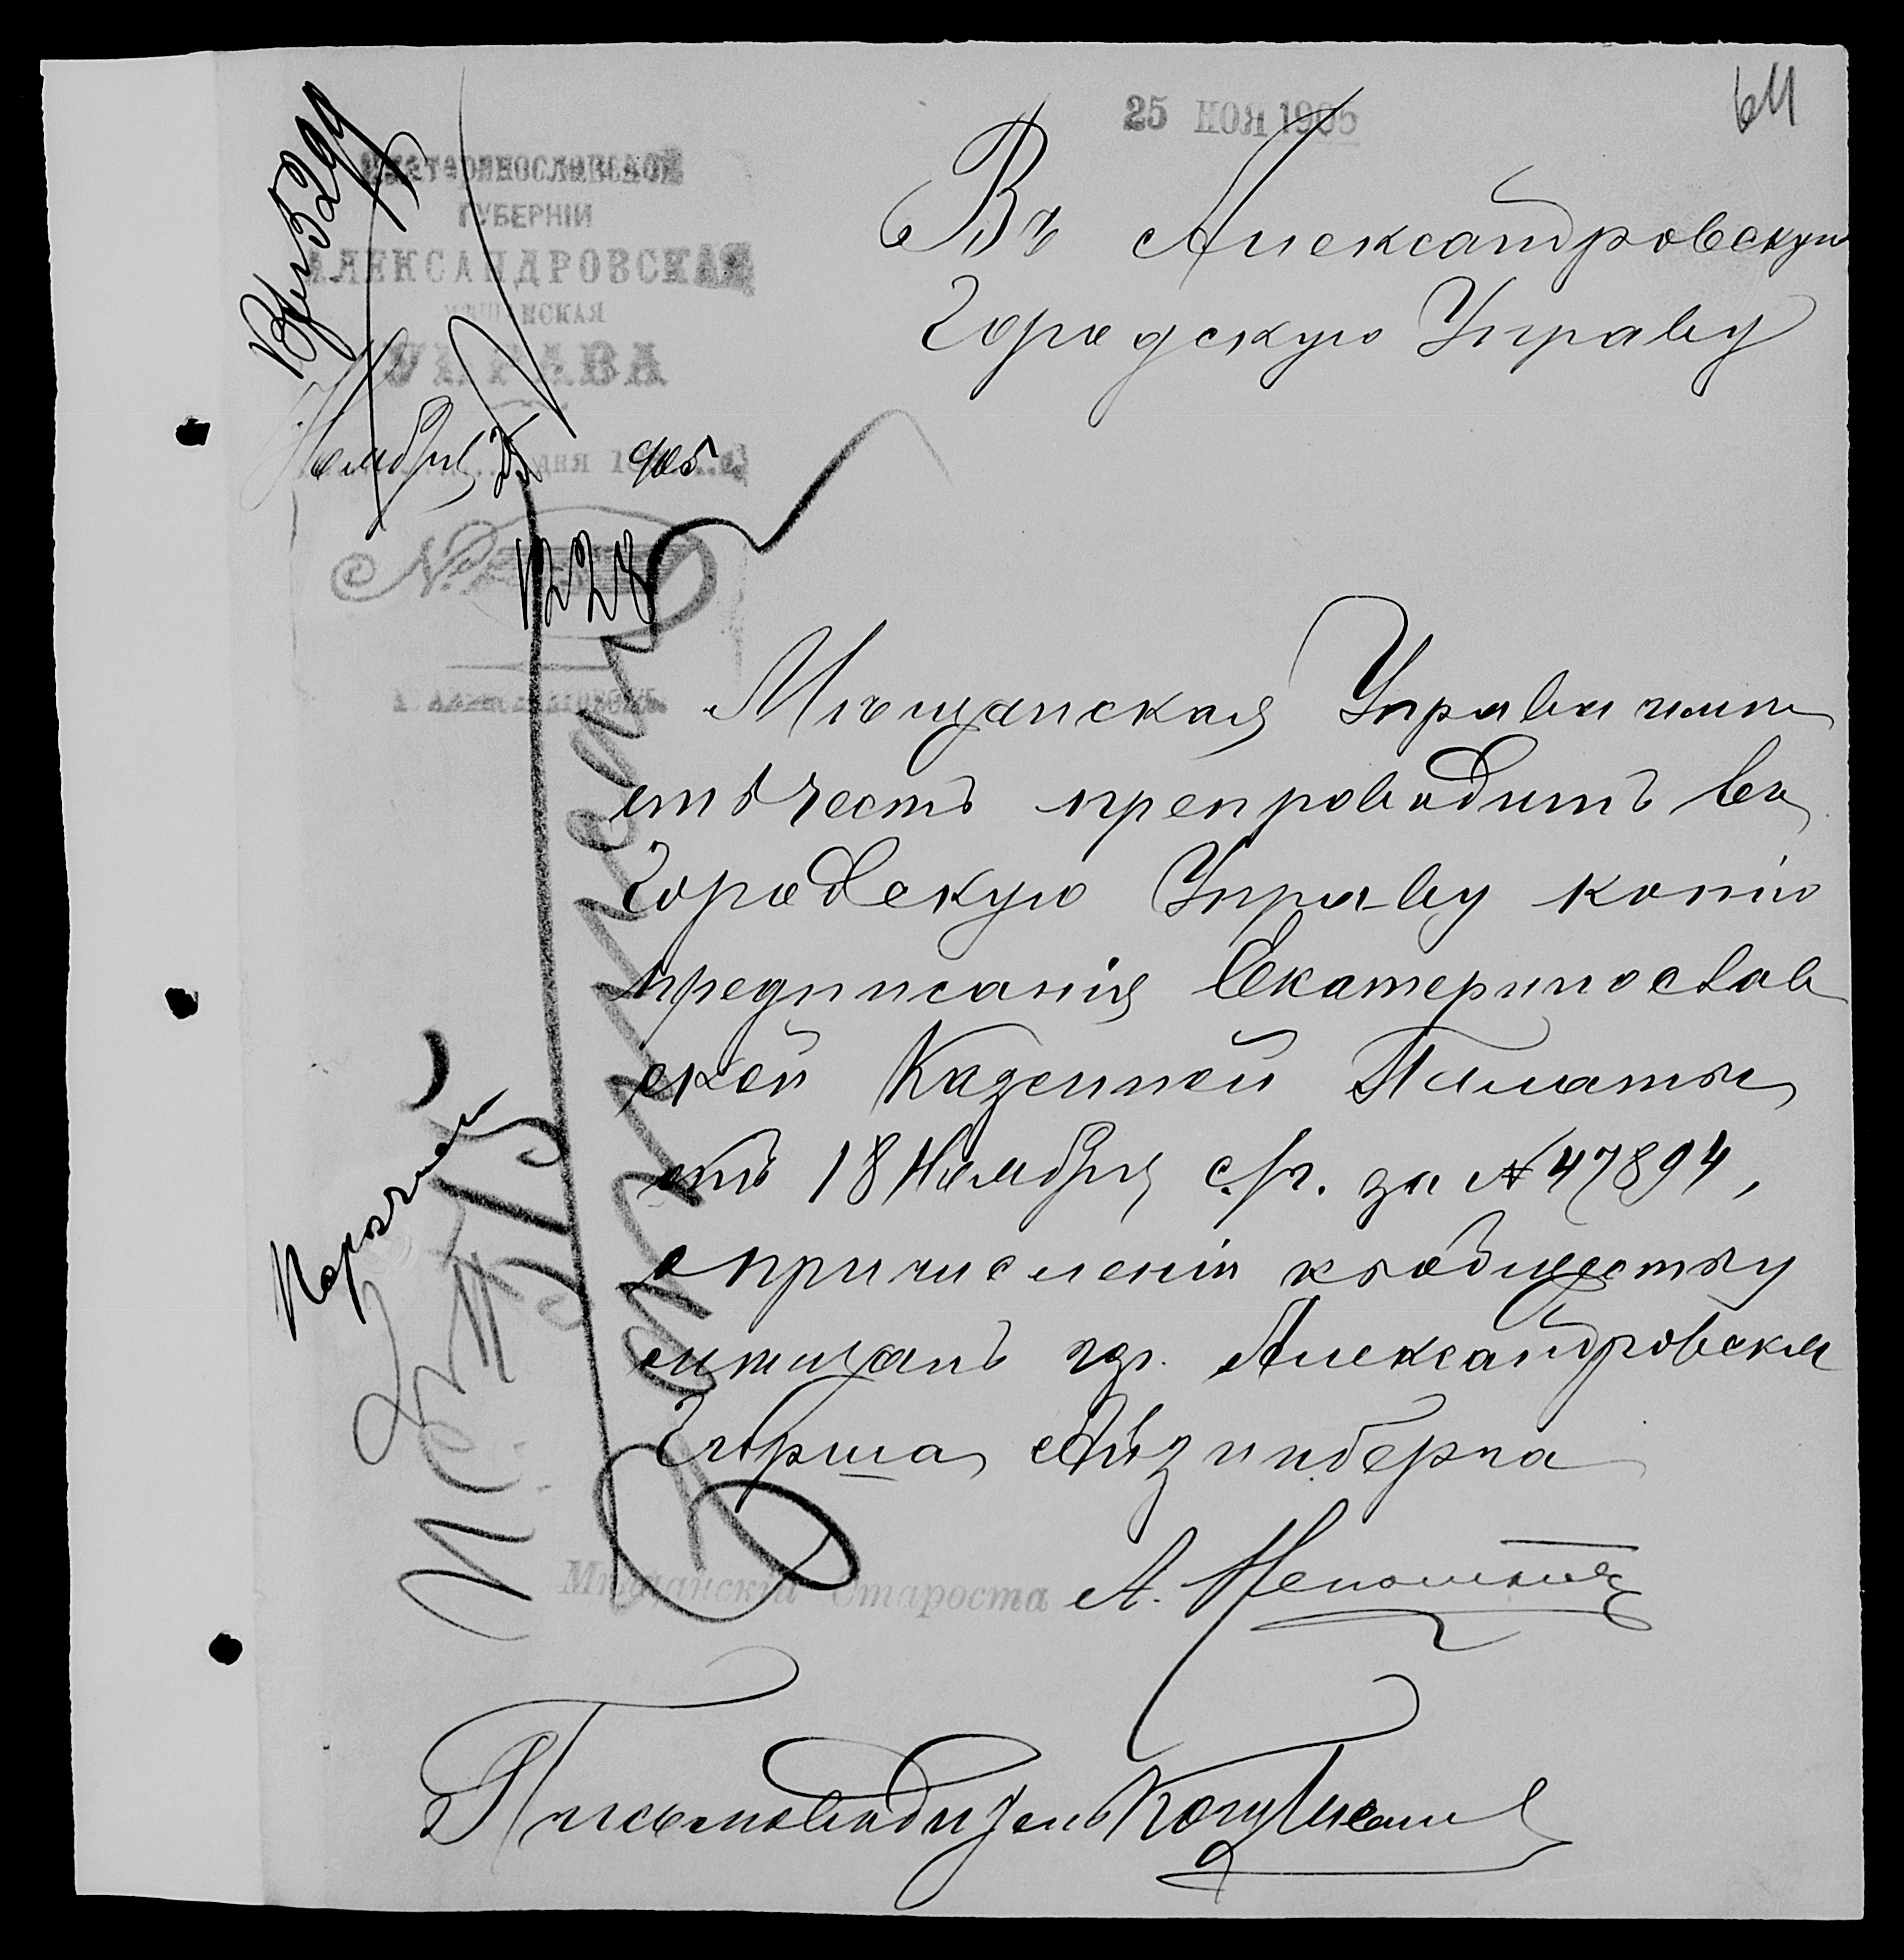 25 НОЯ 1905
64
Екатеринославской
ГУБЕРНІИ
АЛЕКСАНДРОВСКАЯ
МѢЩАНСКАЯ
УПРАВА
Ноября 25 дня 1905 г.
№ 1228
г. Александровскъ.
Въ Александровскую
Городскую Управу
Мѣщанская Управа имѣ
етъ честь препроводить въ
Городскую Управу копію
предписанія Екатеринослав
ской Казенной Палаты
отъ 18 Ноября с/г. за № 47894,
о причисленіи къ обществу
мѣщанъ гор. Александровска
Гирша Айзинберга
Мѣщанскій Староста А.
Письмоводитель